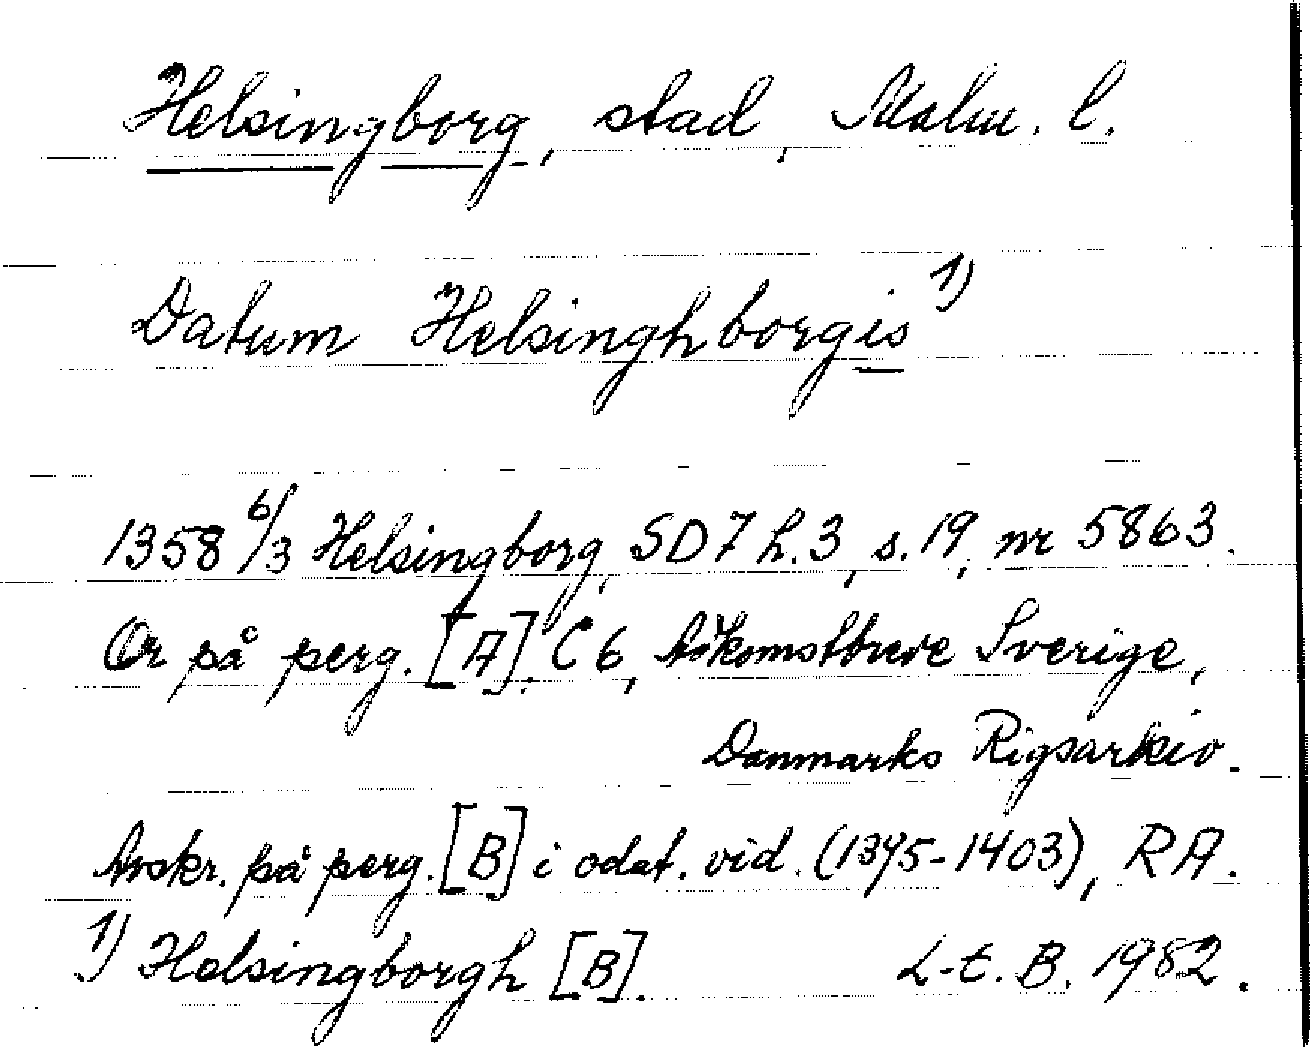 Helsingborg, stad, Malm. l.
Datum Helsinghborgis 1)
1358 6/3 Helsingborg, SD 7 h. 3, s. 19, nr 5863.
Or på perg. [A]. C 6, Adkomstbreve Sverige,
Danmarks Rigsarkiv.
Avskr. på perg. [B] i odat. vid. (1395-1403), RA.
1) Helsingborgh [B]. L-E. B. 1982.